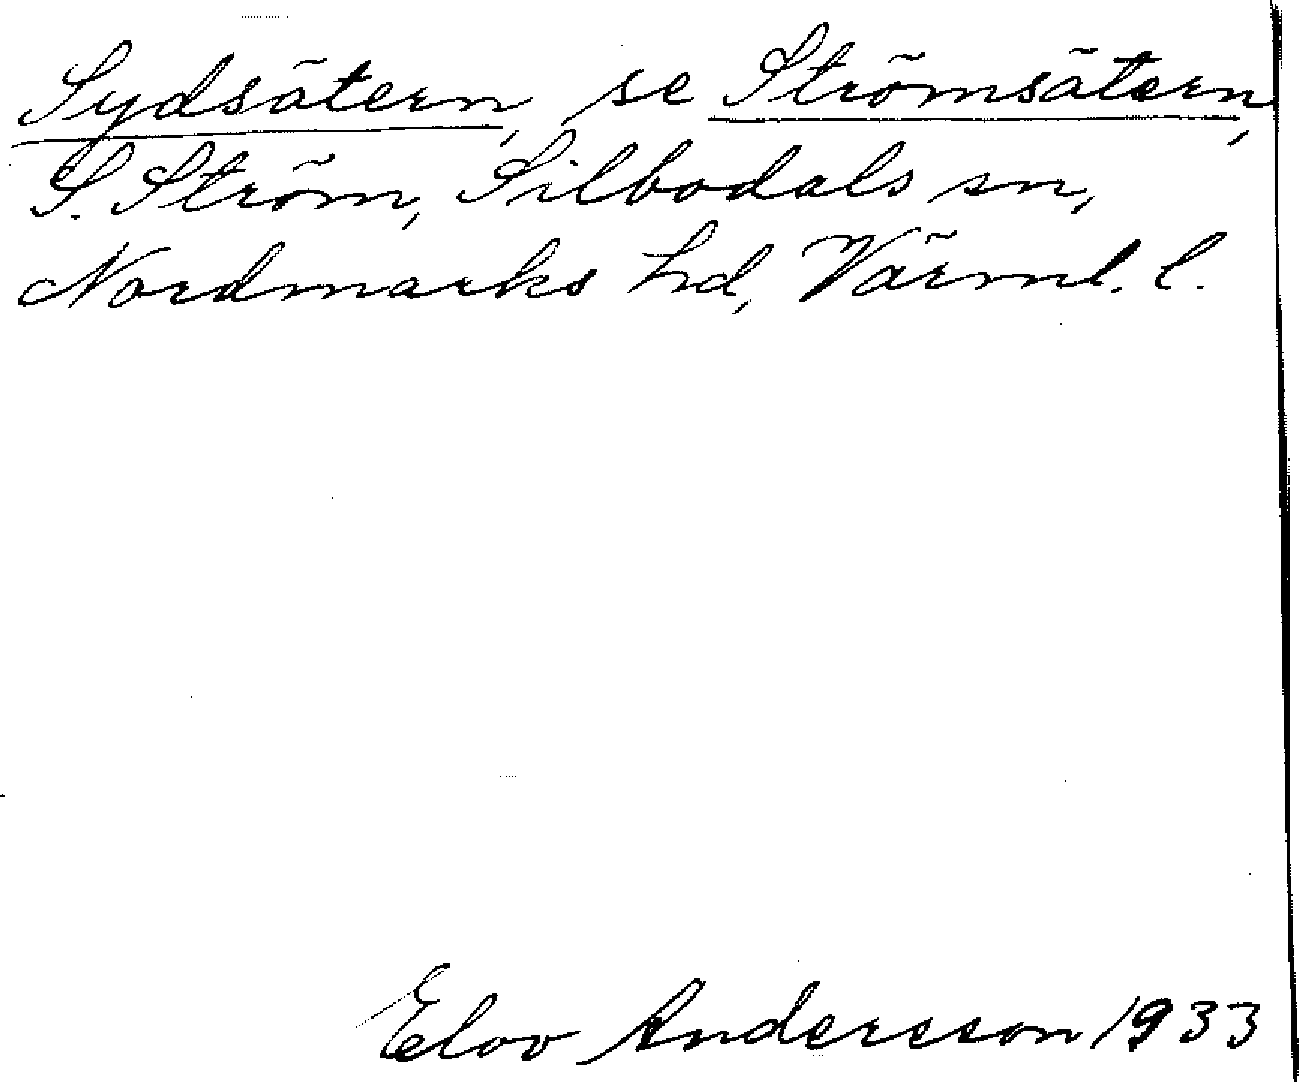 Sydsätern, se Strömsätern,
S. Ström, Silbodals sn,
Nordmarks hd, Värml. l.
Elov Andersson 1933